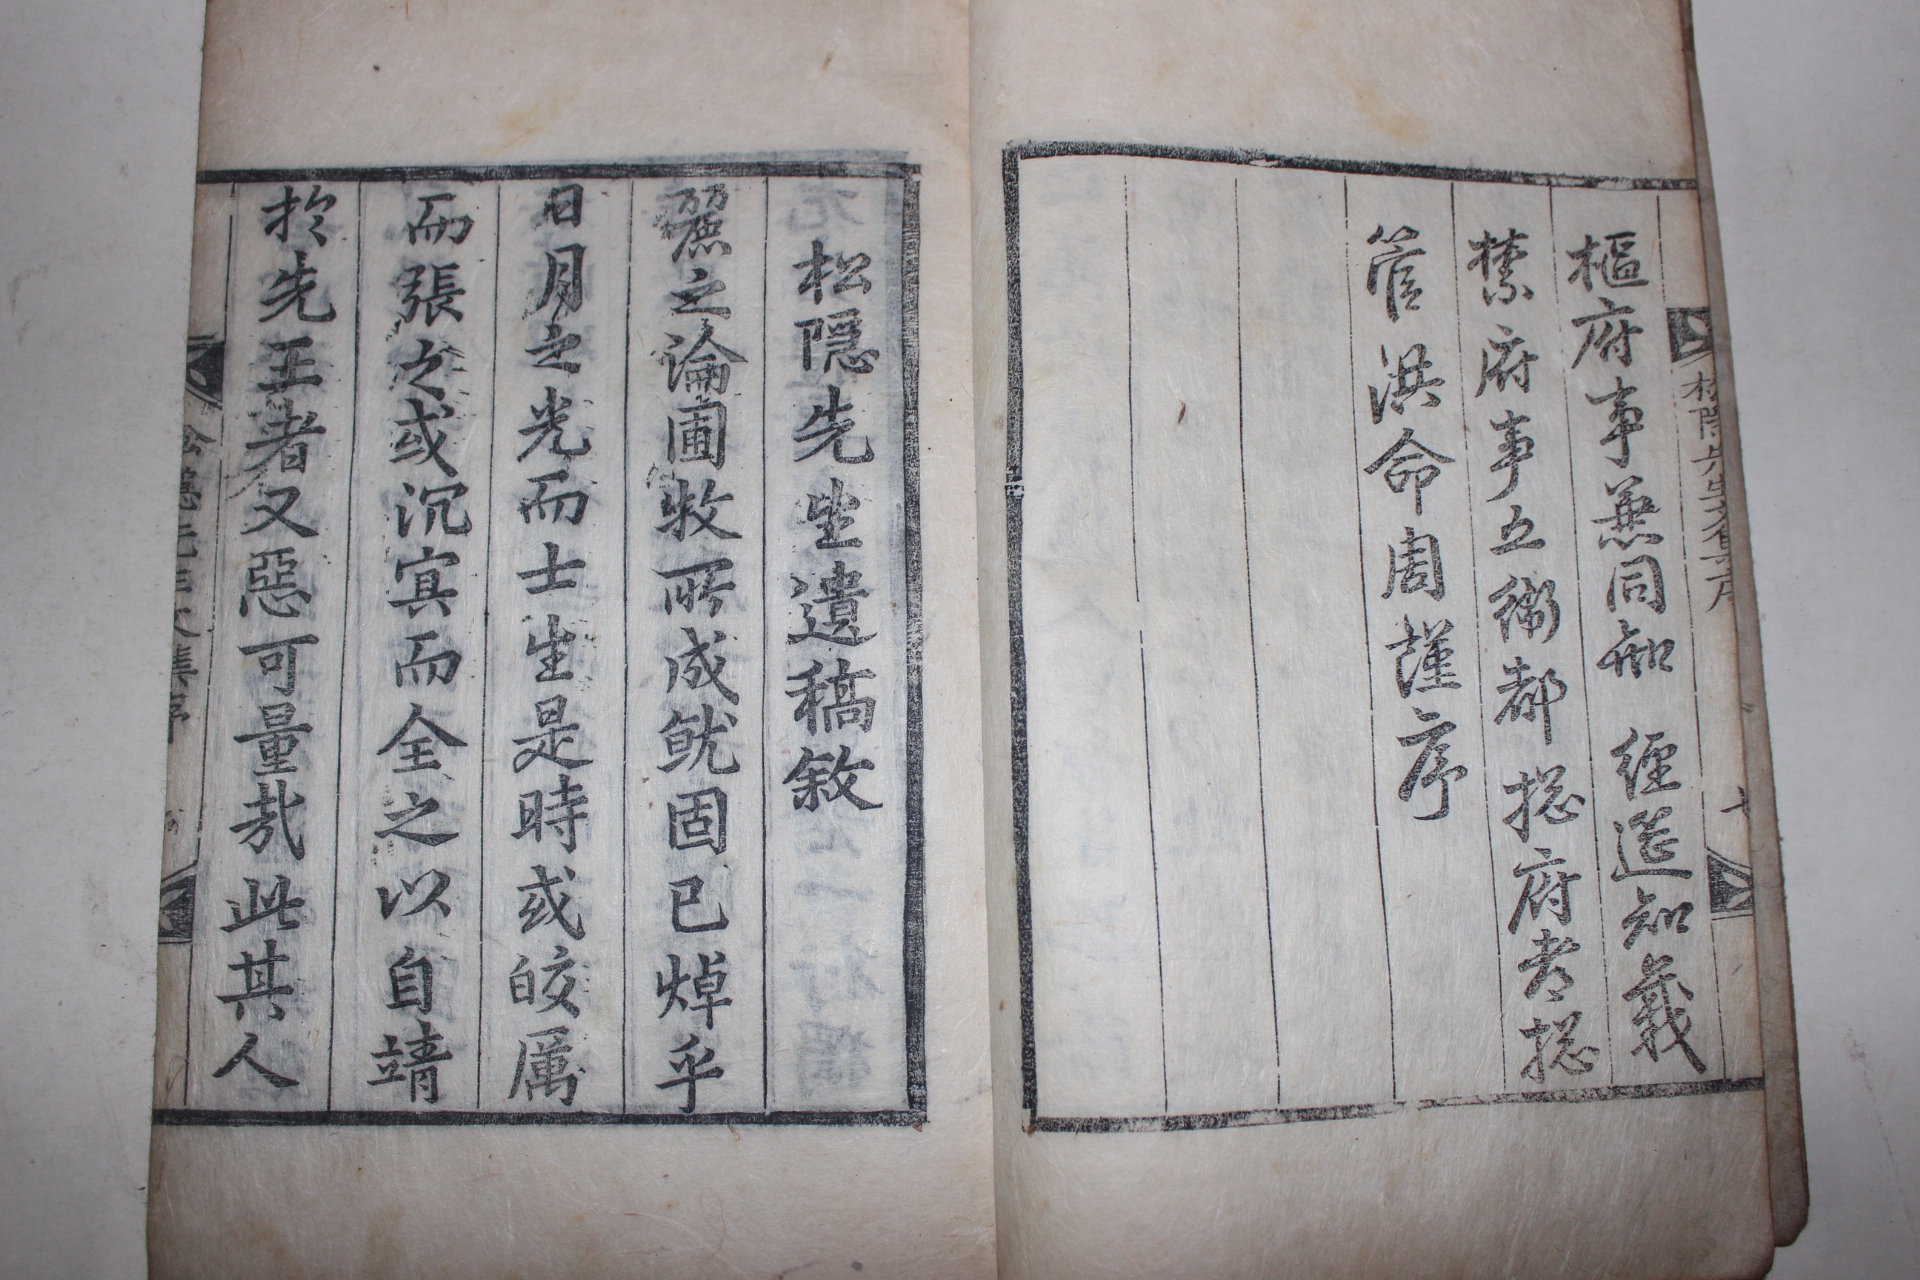 樞府事兼同知 經筵知義
禁府事五衛都捴府都捴
管洪命周謹序
松隱先生遺稿敘
麗之論圃牧所成就固已焯乎
日月之光而士生是時或皎厲
而張之或沉寘而全之以自靖
於先王者又惡可量哉此其人